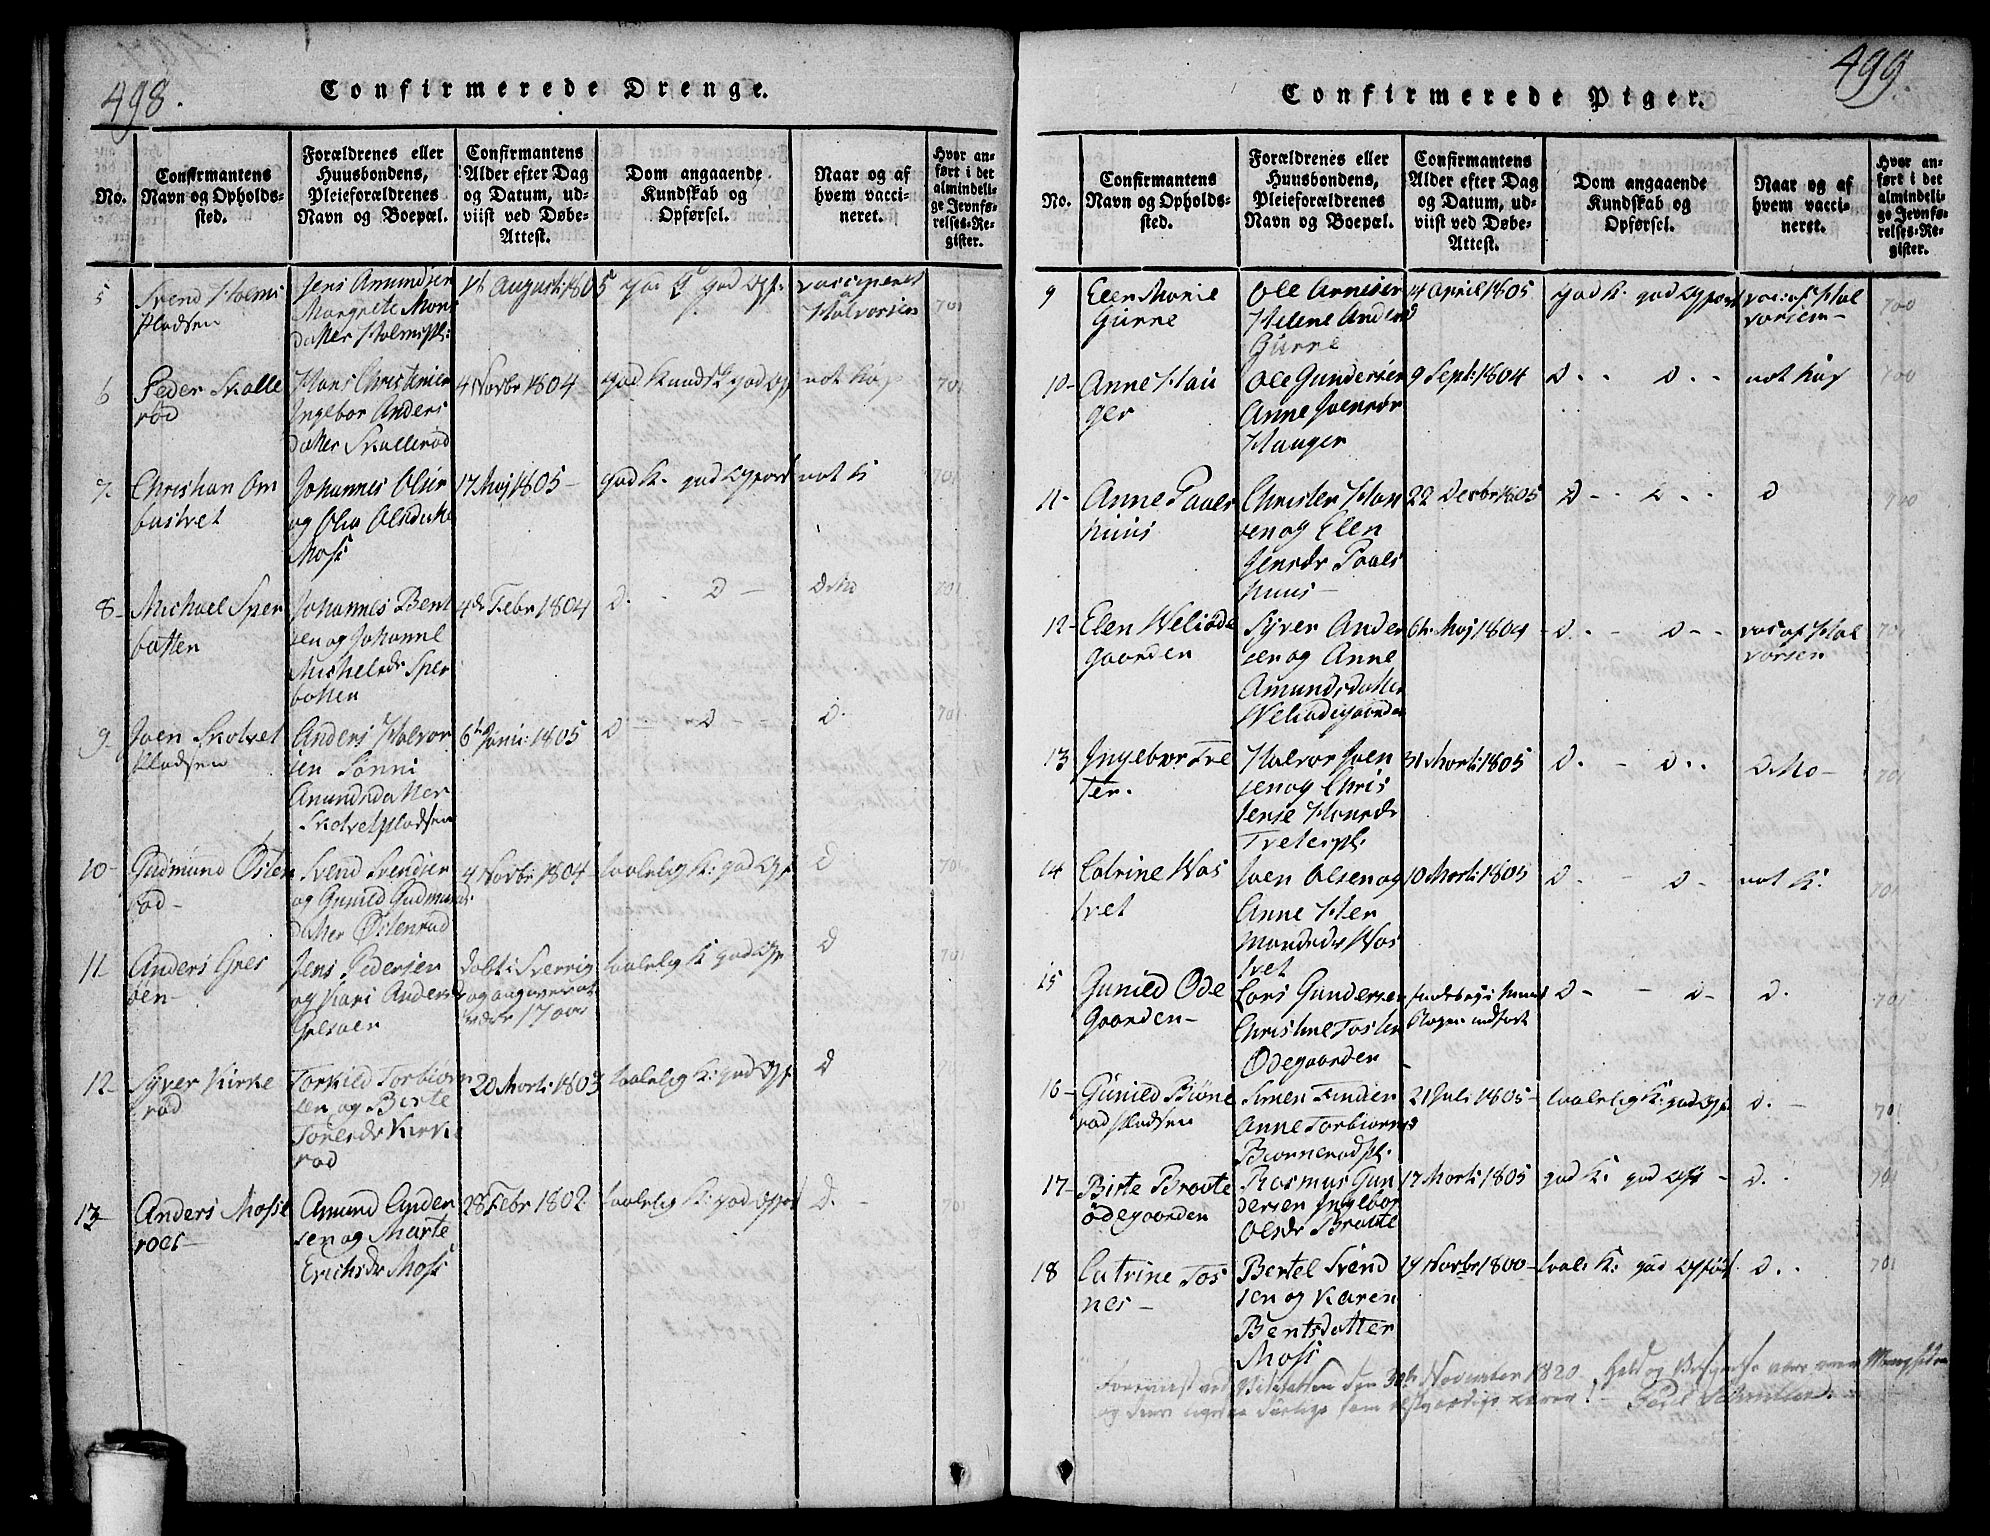 498.
Confirmerede Drenge.
No.
Confirmantens
Navn og Opholds-
sted.
Forældrenes eller
Huusbondens,
Pleieforældrenes
Navn og Boepæl.
Confirmantens
Alder efter Dag
og Datum, ud-
viist ved Døbe-
Attest.
Dom angaaende
Kundskab og
Opførsel.
Naar og af
hvem vacci-
neret.
Hvor an-
ført i det
almindeli-
ge Jevnfø-
relses-Re-
gister.
5
Svend Holms
pladsen
Jens Amundsen
Margrete Mons
datter Holmspl:
16 August: 1805
god K god Opf.
vaccineret
af
Halvorsen
701
6
Peder Skalle
rød
Hans Christensen
Ingebor Anders
datter Skallerød
4 Novbr 1804
god Kundsk god Opf
not Kop
701
7
Christian Om
bustvet
Johannes Olsen
og Olia Olsdatter
Moss
17 Maj 1805 -
god K. god Opførs
not K
701
8 -
Michael Sper
batten
Johannes Bent
sen og Johanne
Michelsdr Sper
batten
4de Febr 1804
D. - D -
Ditto
701
9 -
Joen Skotvet
Pladsen
Anders Halvor
sen Sønni
Amundsdatter
Skotvetpladsen
6te Juni: 1805
D - D - -
D.
701
10 -
Gudmund Østen
rød -
Svend Svendsen
og Gunild Gudmunds
datter Østenrød
4 Novbr 1804 -
taalelig K: god Opf
D
701
11
Anders Gres
øen -
Jens Pedersen
og Kari Andersdr
Gresøen
Døbt i Sverrig
og angiver at
være 17 aar
taalelig K god Opf
D
701
12 -
Syver Kirke
rød
Torkild Torbiørn
sen og Birte
Toresdr Kirke
rød
20 Marti: 1803
taalelig K: god Opf.
D
13 -
Anders Mosse
roes -
Amund Ander
sen og Marte
Erichsdr Moss
28 Febr 1802.
taalelig K: god Opførs
D. -
701
499.
Confirmerede Piger.
No.
Confirmantens
Navn og Opholds-
sted.
Forældrenes eller
Huusbondens,
Pleieforældrenes
Navn og Boepæl.
Confirmantens
Alder efter Dag
og Datum, ud-
viist ved Døbe-
Attest.
Dom angaaende
Kundskab og
Opførsel.
Naar og af
hvem vacci-
neret.
Hvor an-
ført i det
almindeli-
ge Jevnfø-
relses-Re-
gister.
9
Elen Marie
Gurne
Ole Arnesen
Helene Anders
Gurne
14 April 1805
god K. god Opførs
vac: af Hal
vorsen -
700
10 -
Anne Hau
ger
Ole Gundersen
Anne Joensdr
Hauger
9 Sept: 1804
D . . D . .
not Kop
700
11 -
Anne Paals
huus
Christen Han
sen og Elen
Jensdr Paals
huus -
22 Decbr 1805
D - . D . .
D
700
12 -
Elen Weliøde
gaarden
Syver Ander
sen og Anne
Amundsdatter
Weliødegaarden
6te Maj 1804
D. - D - -
vac af Hal
vorsen
701
13
Ingebor Tve
ter.
Halvor Joen
sen og Chris
tense Hansdr
Tveterpl.
31 Marti: 1805
D. - D . .
Ditto -
701
14
Catrine Wos
tvet
Joen Olsen og
Anne Her
mandsdr Wos
tvet
10 Marti: 1805
D. - D -
not K.
701
15
Gunild Øde
Gaarden -
Lars Gundersen
Christine Tosten
Ødegaarden
D - - D -
D.
701
16 -
Gunild Biørne
rød pladsen
Simen Findsen
Anne Torbiørns
Biørnerødpl.
21 Juli 1805 -
taalelig K: god Opf
D. -
701
17 -
Birte Braate
ødegaarden
Rasmus Gun
dersen Ingebor
Olsdr Braate
17 Marti: 1805
god K. god Opf -
D. .
701
18
Catrine Tos
nes -
Bertel Svend
sen og Karen
Bentsdatter
Moss
14 Novbr 1800 -
taal: K: god Opførs
D. .
701
Foreviist ved Visitatsen den 30te November 1820.